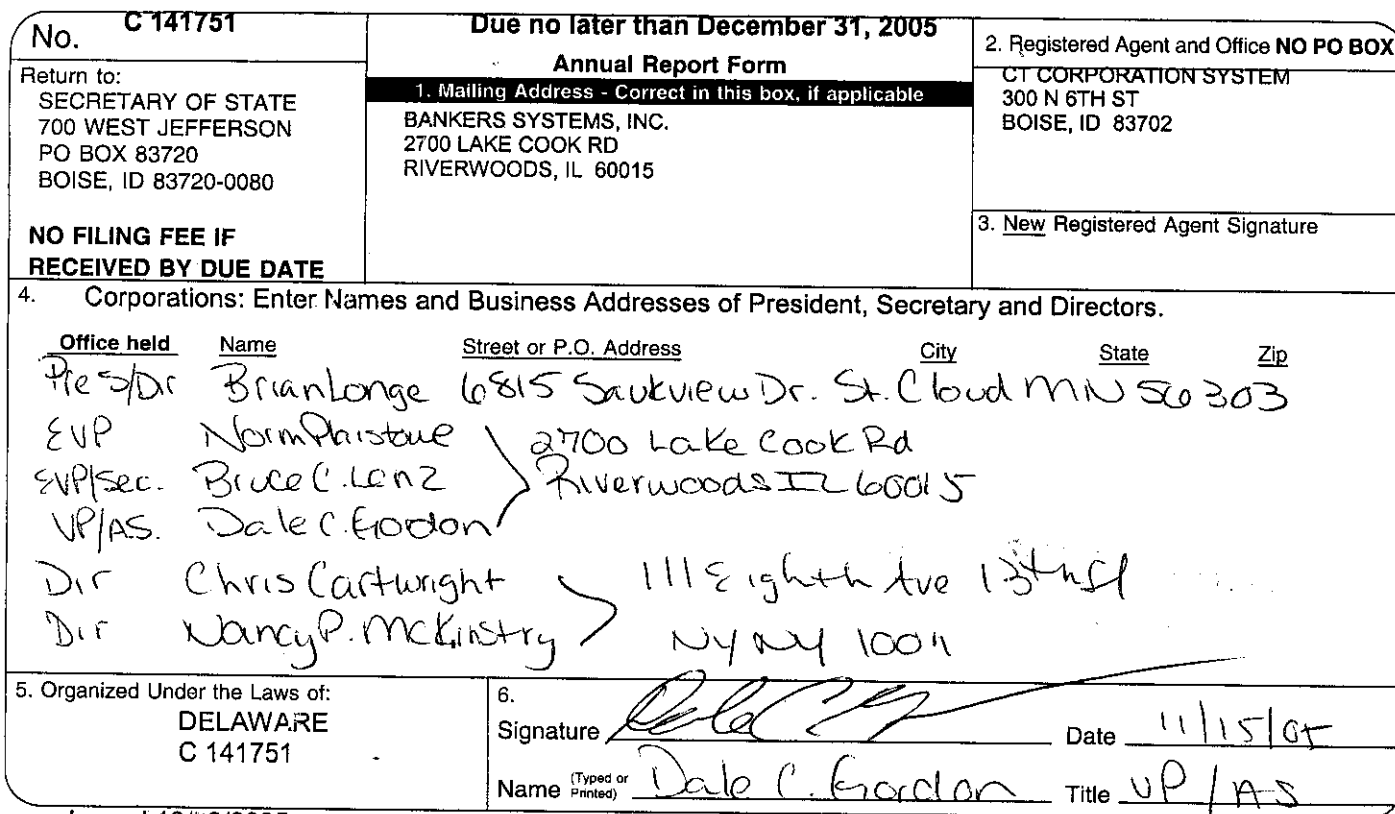 No. C 141751
Return to:
SECRETARY OF STATE
700 WEST JEFFERSON
PO BOX 83720
BOISE, ID 83720-0080
NO FILING FEE IF
RECEIVED BY DUE DATE
Due no later than December 31, 2005
Annual Report Form
1. Mailing Address - Correct in this box, if applicable
BANKERS SYSTEMS, INC.
2700 LAKE COOK RD
RIVERWOODS, IL 60015
2. Registered Agent and Office NO PO BOX
CT CORPORATION SYSTEM
300 N 6TH ST
BOISE, ID 83702
3. New Registered Agent Signature
4. Corporations: Enter Names and Business Addresses of President, Secretary and Directors.
Office held Name Street or P.O. Address City State Zip
Pres/Dir Brian Longe 6815 Saukview Dr. St. Cloud MN 56303
EVP Norm
EVP/Sec. Bruce C. Lenz
VP/AS. Dale C. Gordon
2700 Lake Cook Rd
Riverwoods IL 60015
Dir Chris Cartwright
Dir Nancy P. McKinstry
111 Eighth Ave 13th fl
NY NY 10011
5. Organized Under the Laws of:
DELAWARE
C 141751
6.
Signature Date 11/15/05
Name (Typed or Printed) Dale C. Gordon Title VP/AS